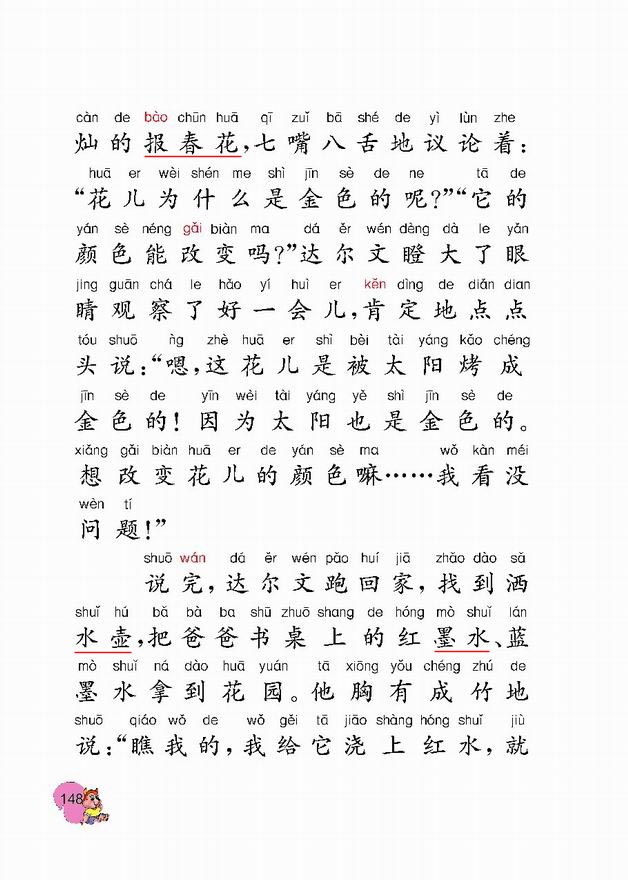 càn de bào chūn huā qī zuǐ bā shé de yì lùn zhe
灿的报春花,七嘴八舌地议论着:
huā er wèi shén me shì jīn sè de ne tā de
“花儿为什么是金色的呢?”“它的
yán sè néng gǎi biàn ma dá ěr wén dèng dà le yǎn
颜色能改变吗?”达尔文瞪大了眼
jing guān chá le hǎo yí huì er kěn dìng de diǎn dian
睛观察了好一会儿,肯定地点点
tóu shuō ǹg zhè huā er shì bèi tài yáng kǎo chéng
头说:“嗯,这花儿是被太阳烤成
jīn sè de yīn wèi tài yáng yě shì jīn sè de
金色的!因为太阳也是金色的。
xiǎng gǎi biàn huā er de yán sè ma wǒ kàn méi
想改变花儿的颜色嘛……我看没
wèn tí
问题!”
shuō wán dá ěr wén pǎo huí jiā zhǎo dào sǎ
说完,达尔文跑回家,找到洒
shuǐ hú bǎ bà ba shū zhuō shang de hóng mò shuǐ lán
水壶,把爸爸书桌上的红墨水、蓝
mò shuǐ ná dào huā yuán tā xiōng yǒu chéng zhú de
墨水拿到花园。他胸有成竹地
shuō qiáo wǒ de wǒ gěi tā jiāo shàng hóng shuǐ jiù
说:“瞧我的,我给它浇上红水,就
148